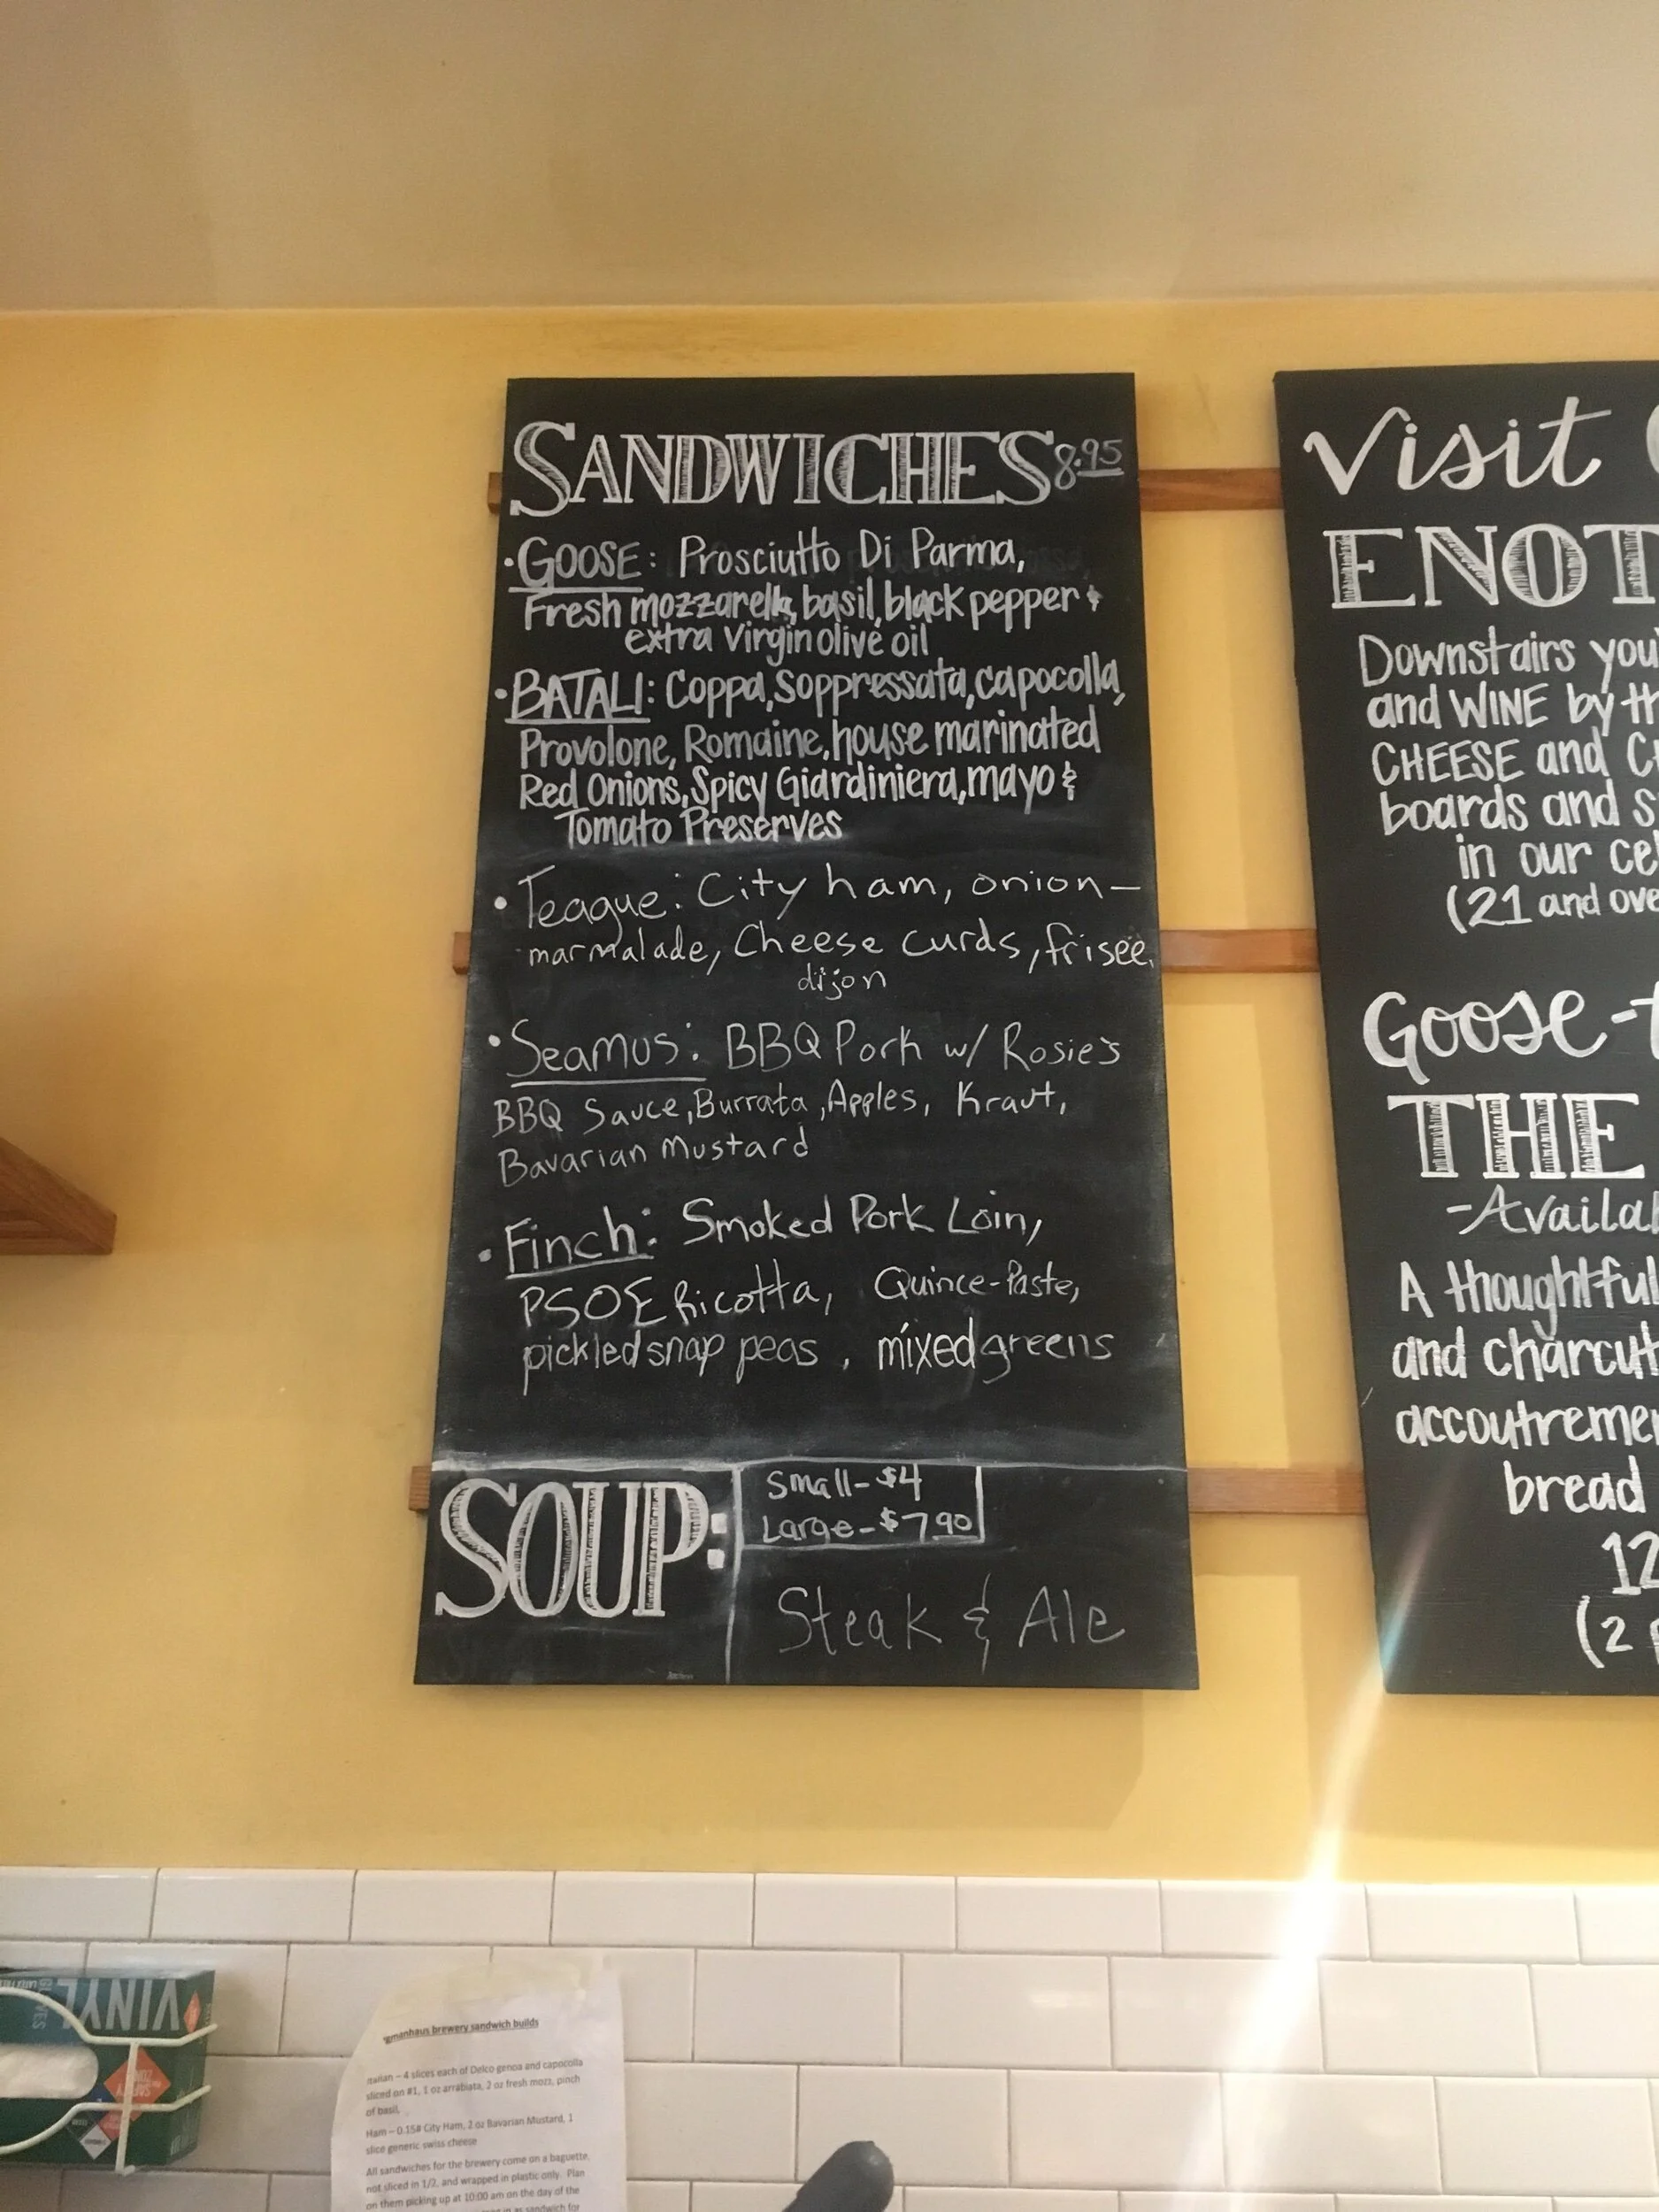 SANDWICHES 8.95
• GOOSE: Prosciutto Di Parma,
Fresh mozzarella, basil, black pepper &
extra virgin olive oil
• BATALI: Coppa, Soppressata, capocolla,
Provolone, Romaine, house marinated
Red Onions, Spicy Giardiniera, mayo &
Tomato Preserves
• Teague: City ham, onion-
marmalade, Cheese curds, frisée,
dijon
• Seamus: BBQ Pork w/ Rosie's
BBQ Sauce, Burrata, Apples, Kraut,
Bavarian Mustard
• Finch: Smoked Pork Loin,
PSOE Ricotta, Quince-Paste,
pickled snap peas, mixed greens
SOUP:
Small - $4
Large - $7.90
Steak & Ale
Visit
ENOT
Downstairs you'
and WINE by th
CHEESE and C
boards and s
in our ce
(21 and ove
Goose-t
THE
-Availa
A thoughtful
and charcut
accoutreme
bread
12
(2
VINYL
gmanhaus brewery sandwich builds
italian – 4 slices each of Delco genoa and capocolla
sliced on #1, 1 oz arrabiata, 2 oz fresh mozz, pinch
of basil.
Ham – 0.15# City Ham, 2 oz Bavarian Mustard, 1
slice generic swiss cheese
All sandwiches for the brewery come on a baguette,
not sliced in 1/2, and wrapped in plastic only. Plan
on them picking up at 10:00 am on the day of the